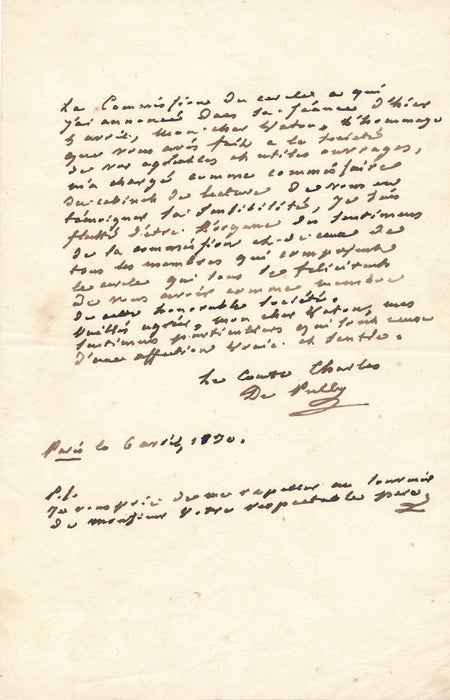 La Commission du cercle a qui
j'ai annoncé dans sa séance d'hier
5 avril, mon cher Vatou, l'hommage
que vous avés fait a la Société
de vos agréables et utiles ouvrages,
m'a chargé comme commissaire
du cabinet de lecture de vous en
témoigner sa sensibilité, je suis
flatté d'être l'organe des sentimens
de la commission et de ceux de
tous les membres qui composent
le cercle qui tous se félicitent
de vous avoir comme membre
de cette honorable Société.
Veuillés agréer, mon cher Vatou, mes
sentimens particuliers qui sont ceux
d'une affection vraie et sentie.
Le Comte Charles
De Pully
Paris le 6 avril, 1830.
P.S.
Je vous prie de me rapeller au souvenir
de monsieur votre respectable pere